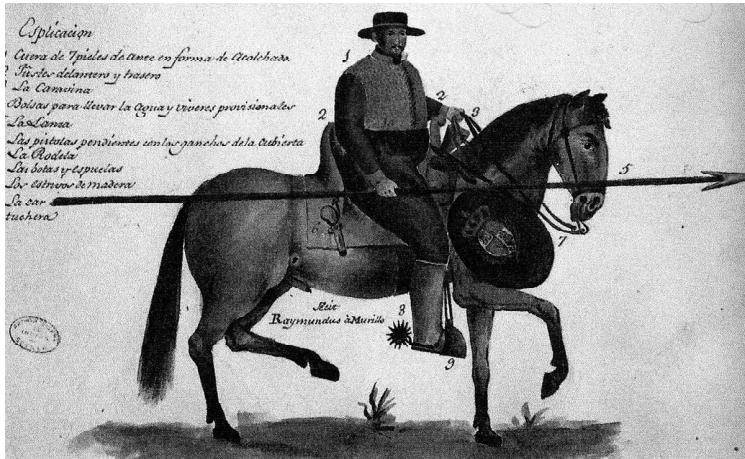 Esplicacion
1 Cuera de 7 pieles de Ante en forma de Acolchado
Fustes delantero y trasero
La Caravina
Bolsas para llevar la Agua y viveres provisionales
La Lanza
Las pistolas pendientes con los ganchos de la Cubierta
La Rodela
Las botas y espuelas
Los estrivos de madera
La car
tuchera
1
2
2
3
5
6
7
8
9
Feit
Raymundus à Murillo